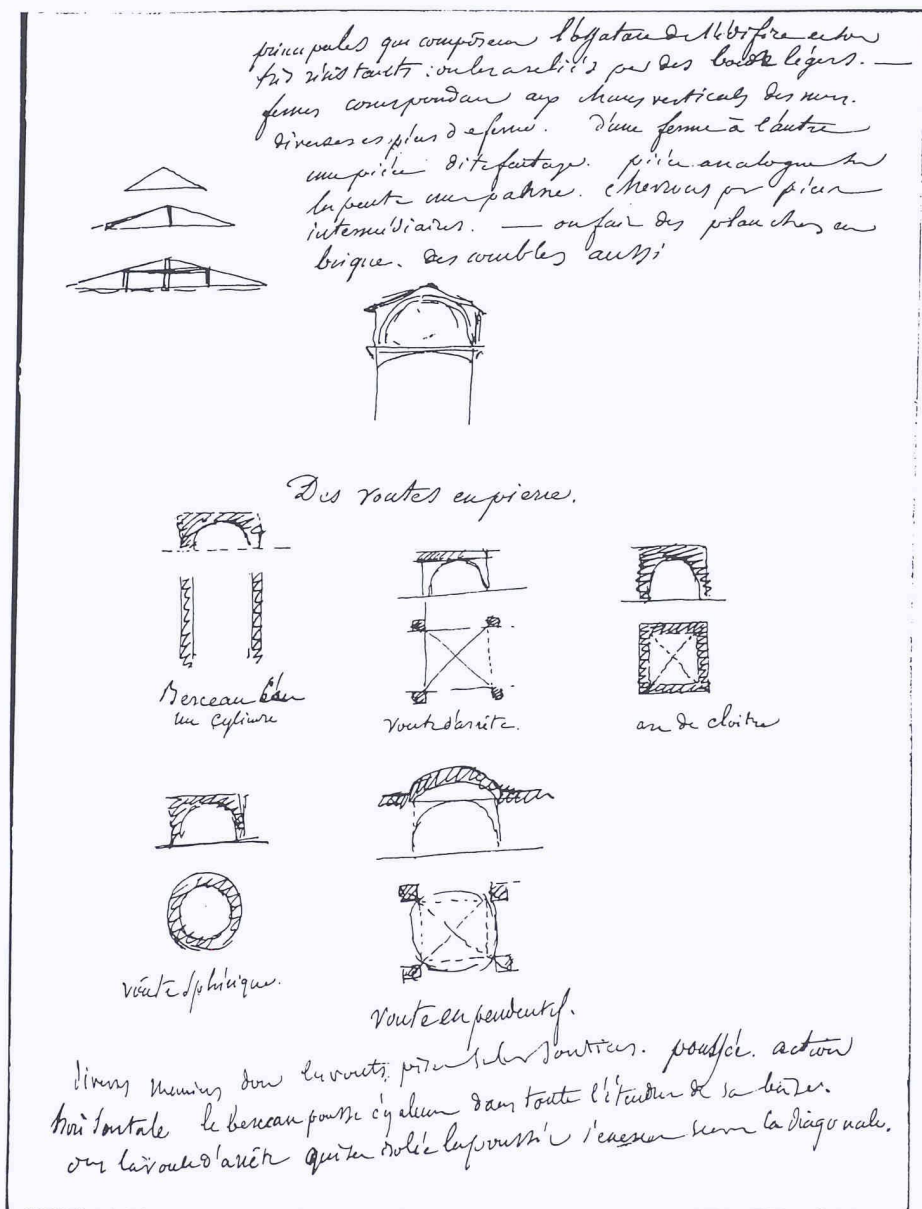 principales qui composent l'ossature de l'édifice en bois
très résistants : on les a reliés par des bois légers. —
fermes correspondant aux chaînes verticales des murs.
diverses espèces de ferme. d'une ferme à l'autre
une pièce dite faitage. pièce analogue sur
la pente une panne. chevrons pr pièces
intermédiaires. — on fait des planchers en
brique. des combles aussi
Des voutes en pierre.
Berceau
un cylindre
voute d'arrête.
arc de cloitre
voûte sphérique.
voute en pendentif.
divers manières dont les voutes pèsent sur les soutiens. poussée. action
horisontale le berceau pousse également dans toute l'étendue de sa base.
la voute d'arrête qui est isolée la poussée s'exerce suivant la diagonale.